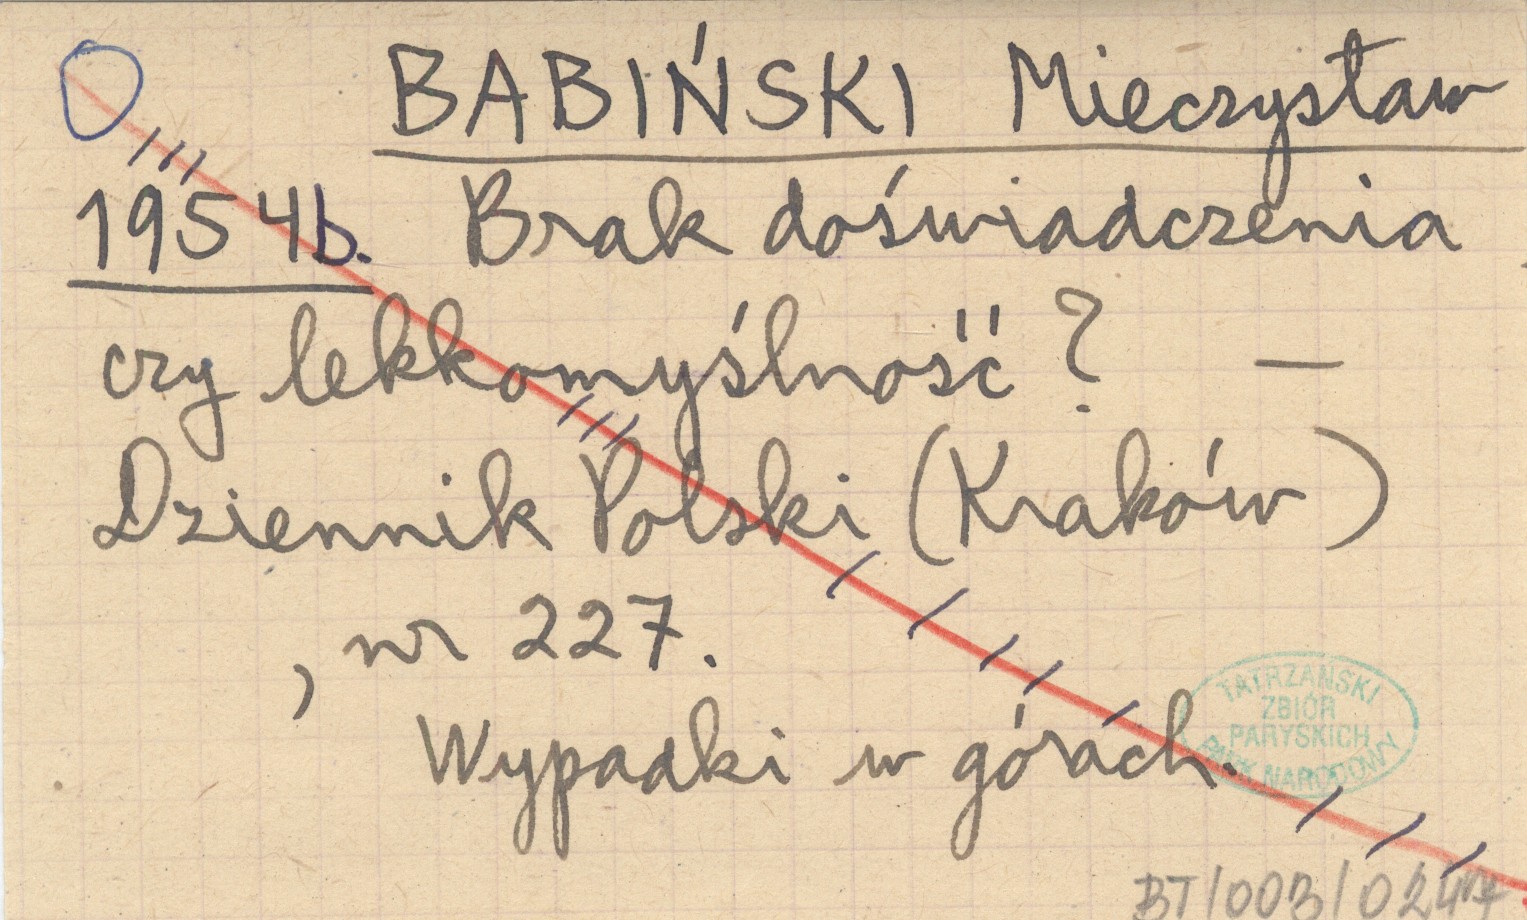 BABIŃSKI Mieczysław
1954b. Brak doświadczenia
czy lekkomyślność? —
Dziennik Polski (Kraków)
, nr 227.
Wypadki w górach.
TATRZAŃSKI
ZBIÓR
PARYSKICH
PARK NARODOWY